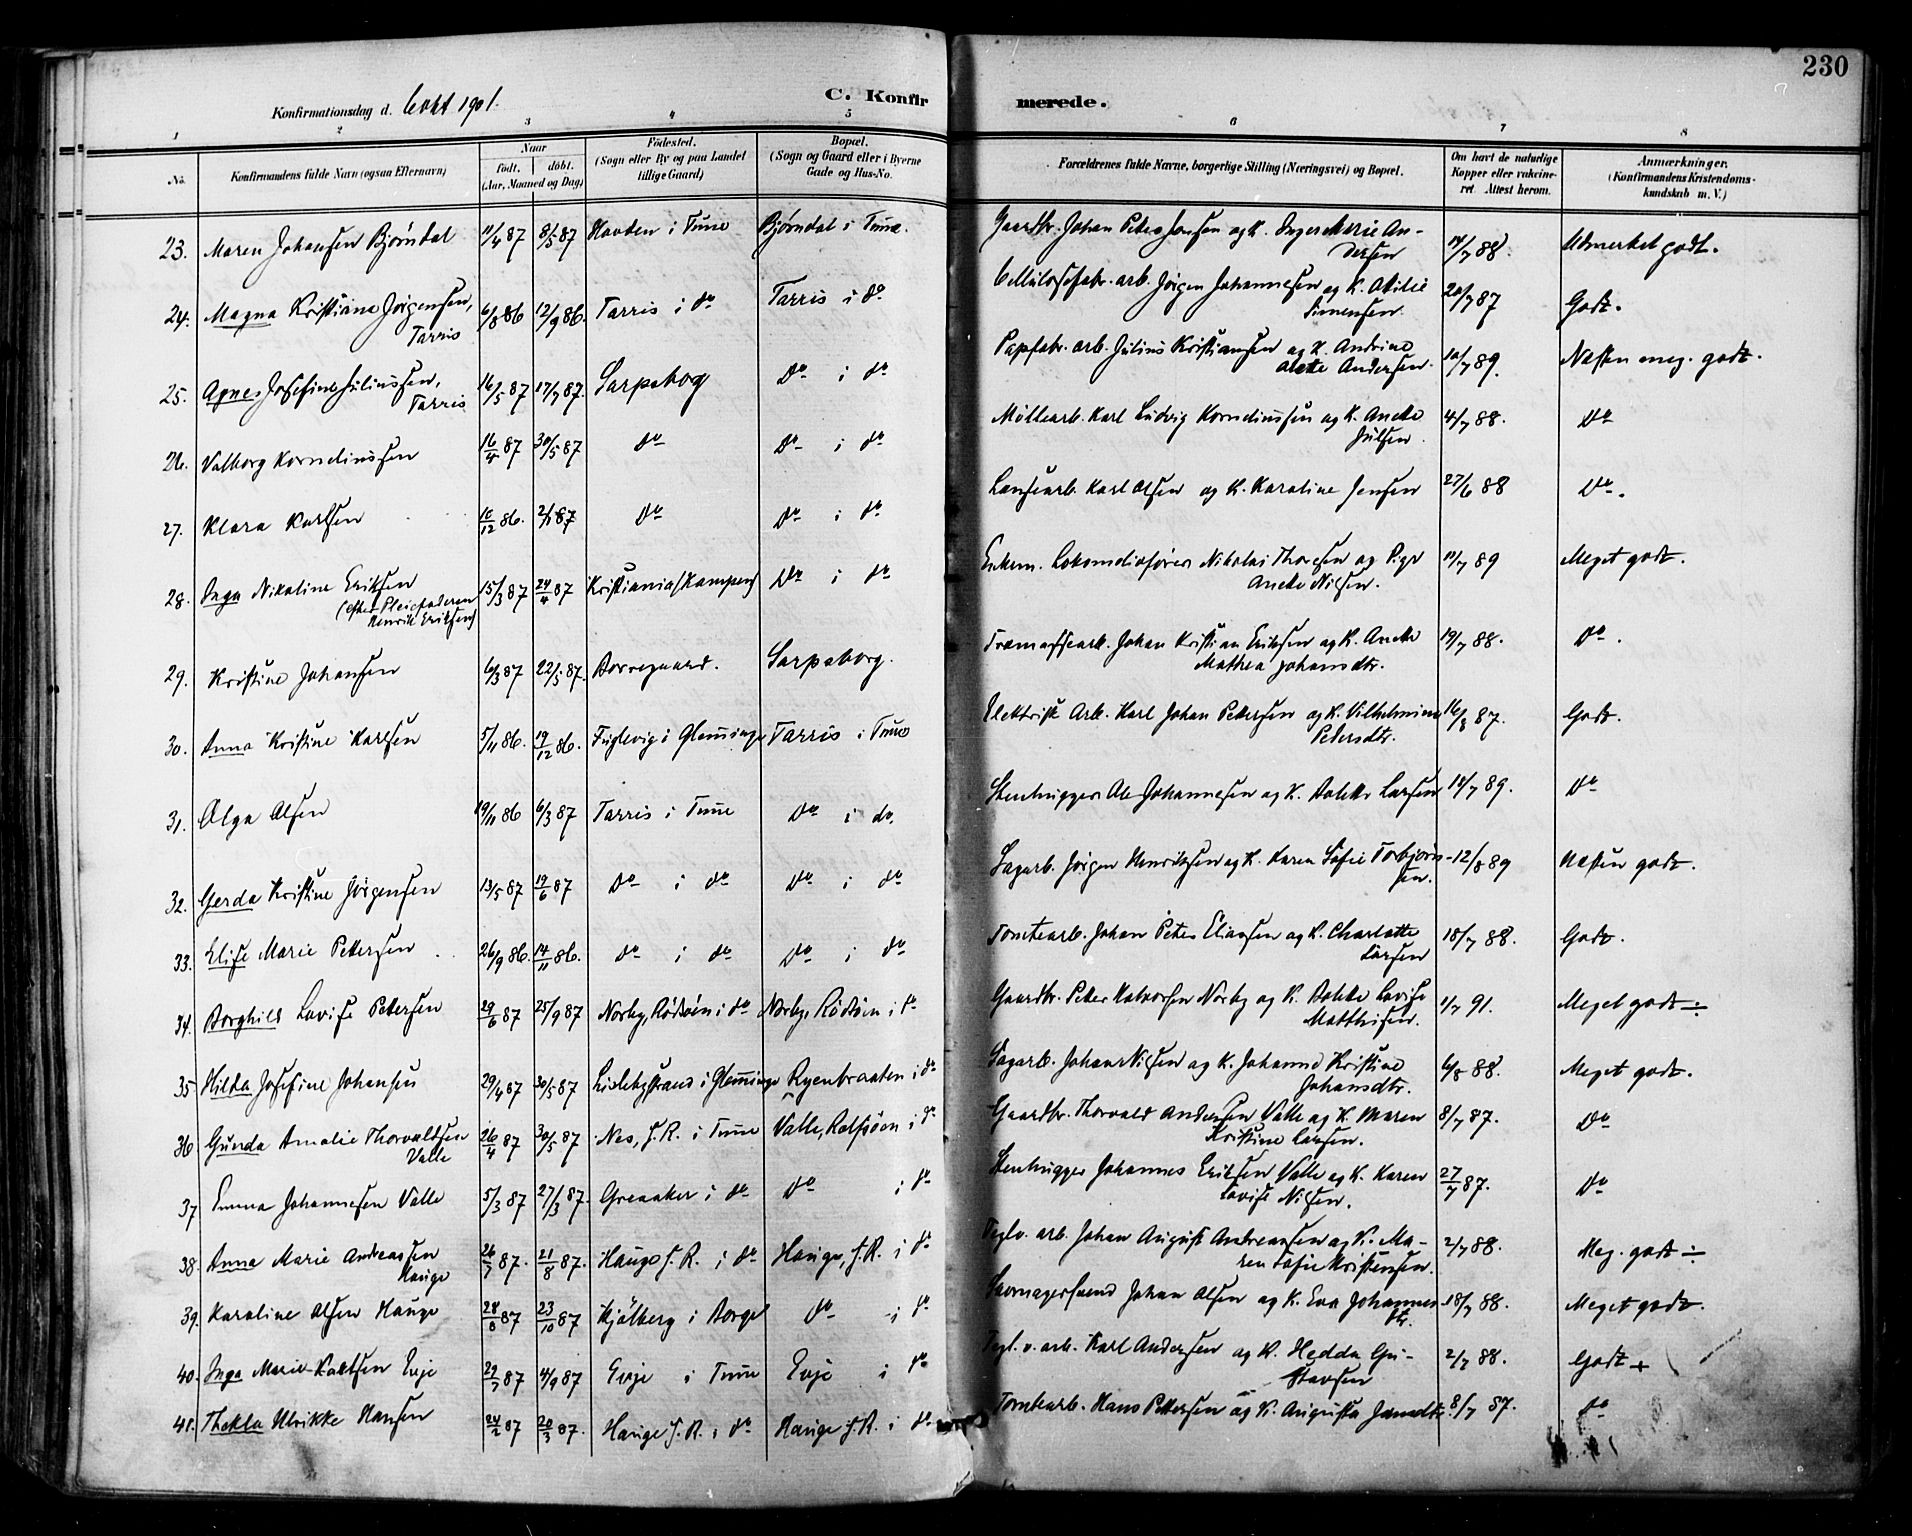 230
Konfirmationsdag d. 6 okt 1901.
C. Konfir
merede.
1 2 3 4 5 6 7 8
No.
Konfirmandens fulde Navn (ogsaa Efternavn)
Naar
født. døbt.
(Aar, Maaned og Dag)
Fødested.
(Sogn eller By og paa Landet
tillige Gaard)
Bopæl.
(Sogn og Gaard eller i Byerne
Gade og Hus-No.
Forældrenes fulde Navne, borgerlige Stilling (Næringsvei) og Bopæl.
Om havt de naturlige
Kopper eller vakcine-
ret. Attest herom.
Anmærkninger.
(Konfirmandens Kristendoms-
kundskab m. V.)
23. Maren Johansen Bjørndal 11/4 87 8/5 87 Havden i Tune Bjørndal i Tune. Gaardbr. Johan Peter Jensen og K. Inger Marie An-
dersen 14/7 88. Udmerket godt.
24. Magna Kristiane Jørgensen,
Tarris 6/8 86 12/9 86. Tarris i do Tarris i do Cellulosefabr. arb. Jørgen Johannesen og K. Otilie
Simensen. 20/7 87 Godt.
25. Agnes Josefine Juliussen,
Tarris 16/5 87 17/7 87. Sarpsborg Do i do Papfabr. arb. Julius Kristiansen og K. Andrine
Andersen. 10/7 89. Næsten meg. godt.
26. Valborg Korneliussen 16/4 87 30/5 87 do Do i do Møllearb. Karl Ludvig Korneliussen og K. Anette
Julsen. 4/7 88. Do
27. Klara Karlsen 10/12 86. 2/1 87 Do Do i do Lænsearb. Karl Olsen og K. Karoline Jensen 27/6 88 Do.
28. Inga Nikoline Eriksen
(efter Pleiefaderen
Henrik Eriksen) 15/3 87 24/4 87 Kristiania (Kampen) Do i do Enkem. Lokomotivfører Nikolai Thoresen og Pige
Anette Nilsen. 11/7 89 Meget godt.
29. Kristine Johansen 6/3 87 22/5 87. Borregaard. Sarpsborg. Træmassearb. Johan Kristian Eriksen og K. Anette
Mathea Johansdtr. 19/7 88. Do.
30. Anna Kristine Karlsen 5/11 86. 19/12 86. Fuglevig i Glemminge Tarris i Tune Elektrisk Arb. Karl Johan Pettersen og K. Vilhelmine
Petersdtr. 16/8 87. Godt.
31. Olga Olsen 19/11 86 6/3 87 Tarris i Tune Do i do. Stenhugger Ole Johannesen og K. Bolette Larsen 18/7 89. Do
32. Gerda Kristine Jørgensen 13/5 87 19/6 87 Do i do Do i do Sagarb. Jørgen Henriksen og K. Karen Sofie Torbjørn-
sen. 12/8 89 Næsten godt.
33. Elise Marie Pettersen 26/9 86. 14/11 86. do i do Do i do Tomtearb. Johan Peter Eliassen og K. Charlotte
Larsen 18/7 88. Godt.
34. Borghild Lovise Petersen 29/6 87 25/9 87 Norby, Rødsøen i do Norby, Rødsøen i do Gaardbr. Peter Halvorsen Norby og K. Bolette Lovise
Matthisen. 1/7 91. Meget godt ÷
35 Hilda Josefine Johansen 29/4 87 30/5 87 Lislebystrand i Glemminge Ryenbraaten i do Sagarb. Johan Nilsen og K. Johanne Kristine
Johansdtr. 6/8 88. Meget godt.
36. Gunda Amalie Thorvaldsen
Valle 26/4 87 30/5 87 Nes, S. R. i Tune Valle, Rolfsøen i do Gaardbr. Thorvald Andersen Valle og K. Maren
Kristine Larsen. 8/7 87. Do
37 Emma Johannesen Valle 5/3 87 27/3 87. Greaaker i do Do i do Stenhugger Johannes Eriksen Valle og K. Karen
Lovise Nilsen. 27/7 87. Do
38. Anna Marie Andreassen
Hauge 26/7 87. 21/8 87. Hauge S. R. i do Hauge, S. R. i do Teglv. arb. Johan August Andreassen og K. Ma-
ren Sofie Kristensen. 2/7 88. Meg. godt ÷
39. Karoline Olsen Hauge 28/8 87 23/10 87 Kjølberg i Borge do i do Skomagersvend Johan Olsen og K. Eva Johannes-
dtr. 18/7 88. Meget godt.
40. Inga Marie Karlsen Evje 22/7 87 4/9 87 Evje i Tune Evje i do Tegl. v. arb. Karl Andersen og K. Hedda Gu-
stavsen 2/7 88. Godt +
41. Thekla Ulrikke Hansen 24/2 87 20/3 87. Hauge S. R. i do Hauge S. R. i do. Tomtearb. Hans Pettersen og K. Augusta Jansdtr. 8/7 87. do